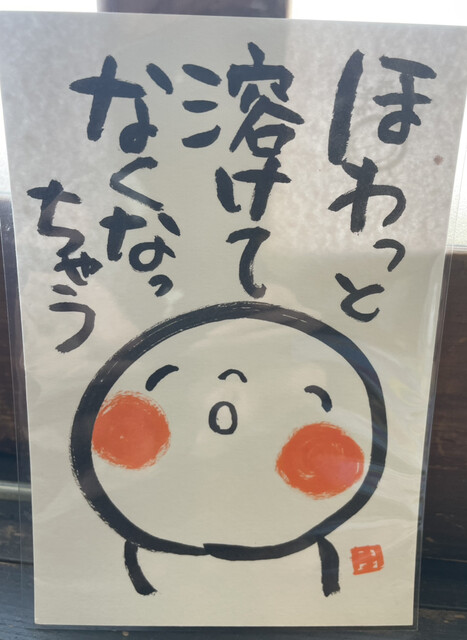 ほわっと
溶けて
なくなっ
ちゃう